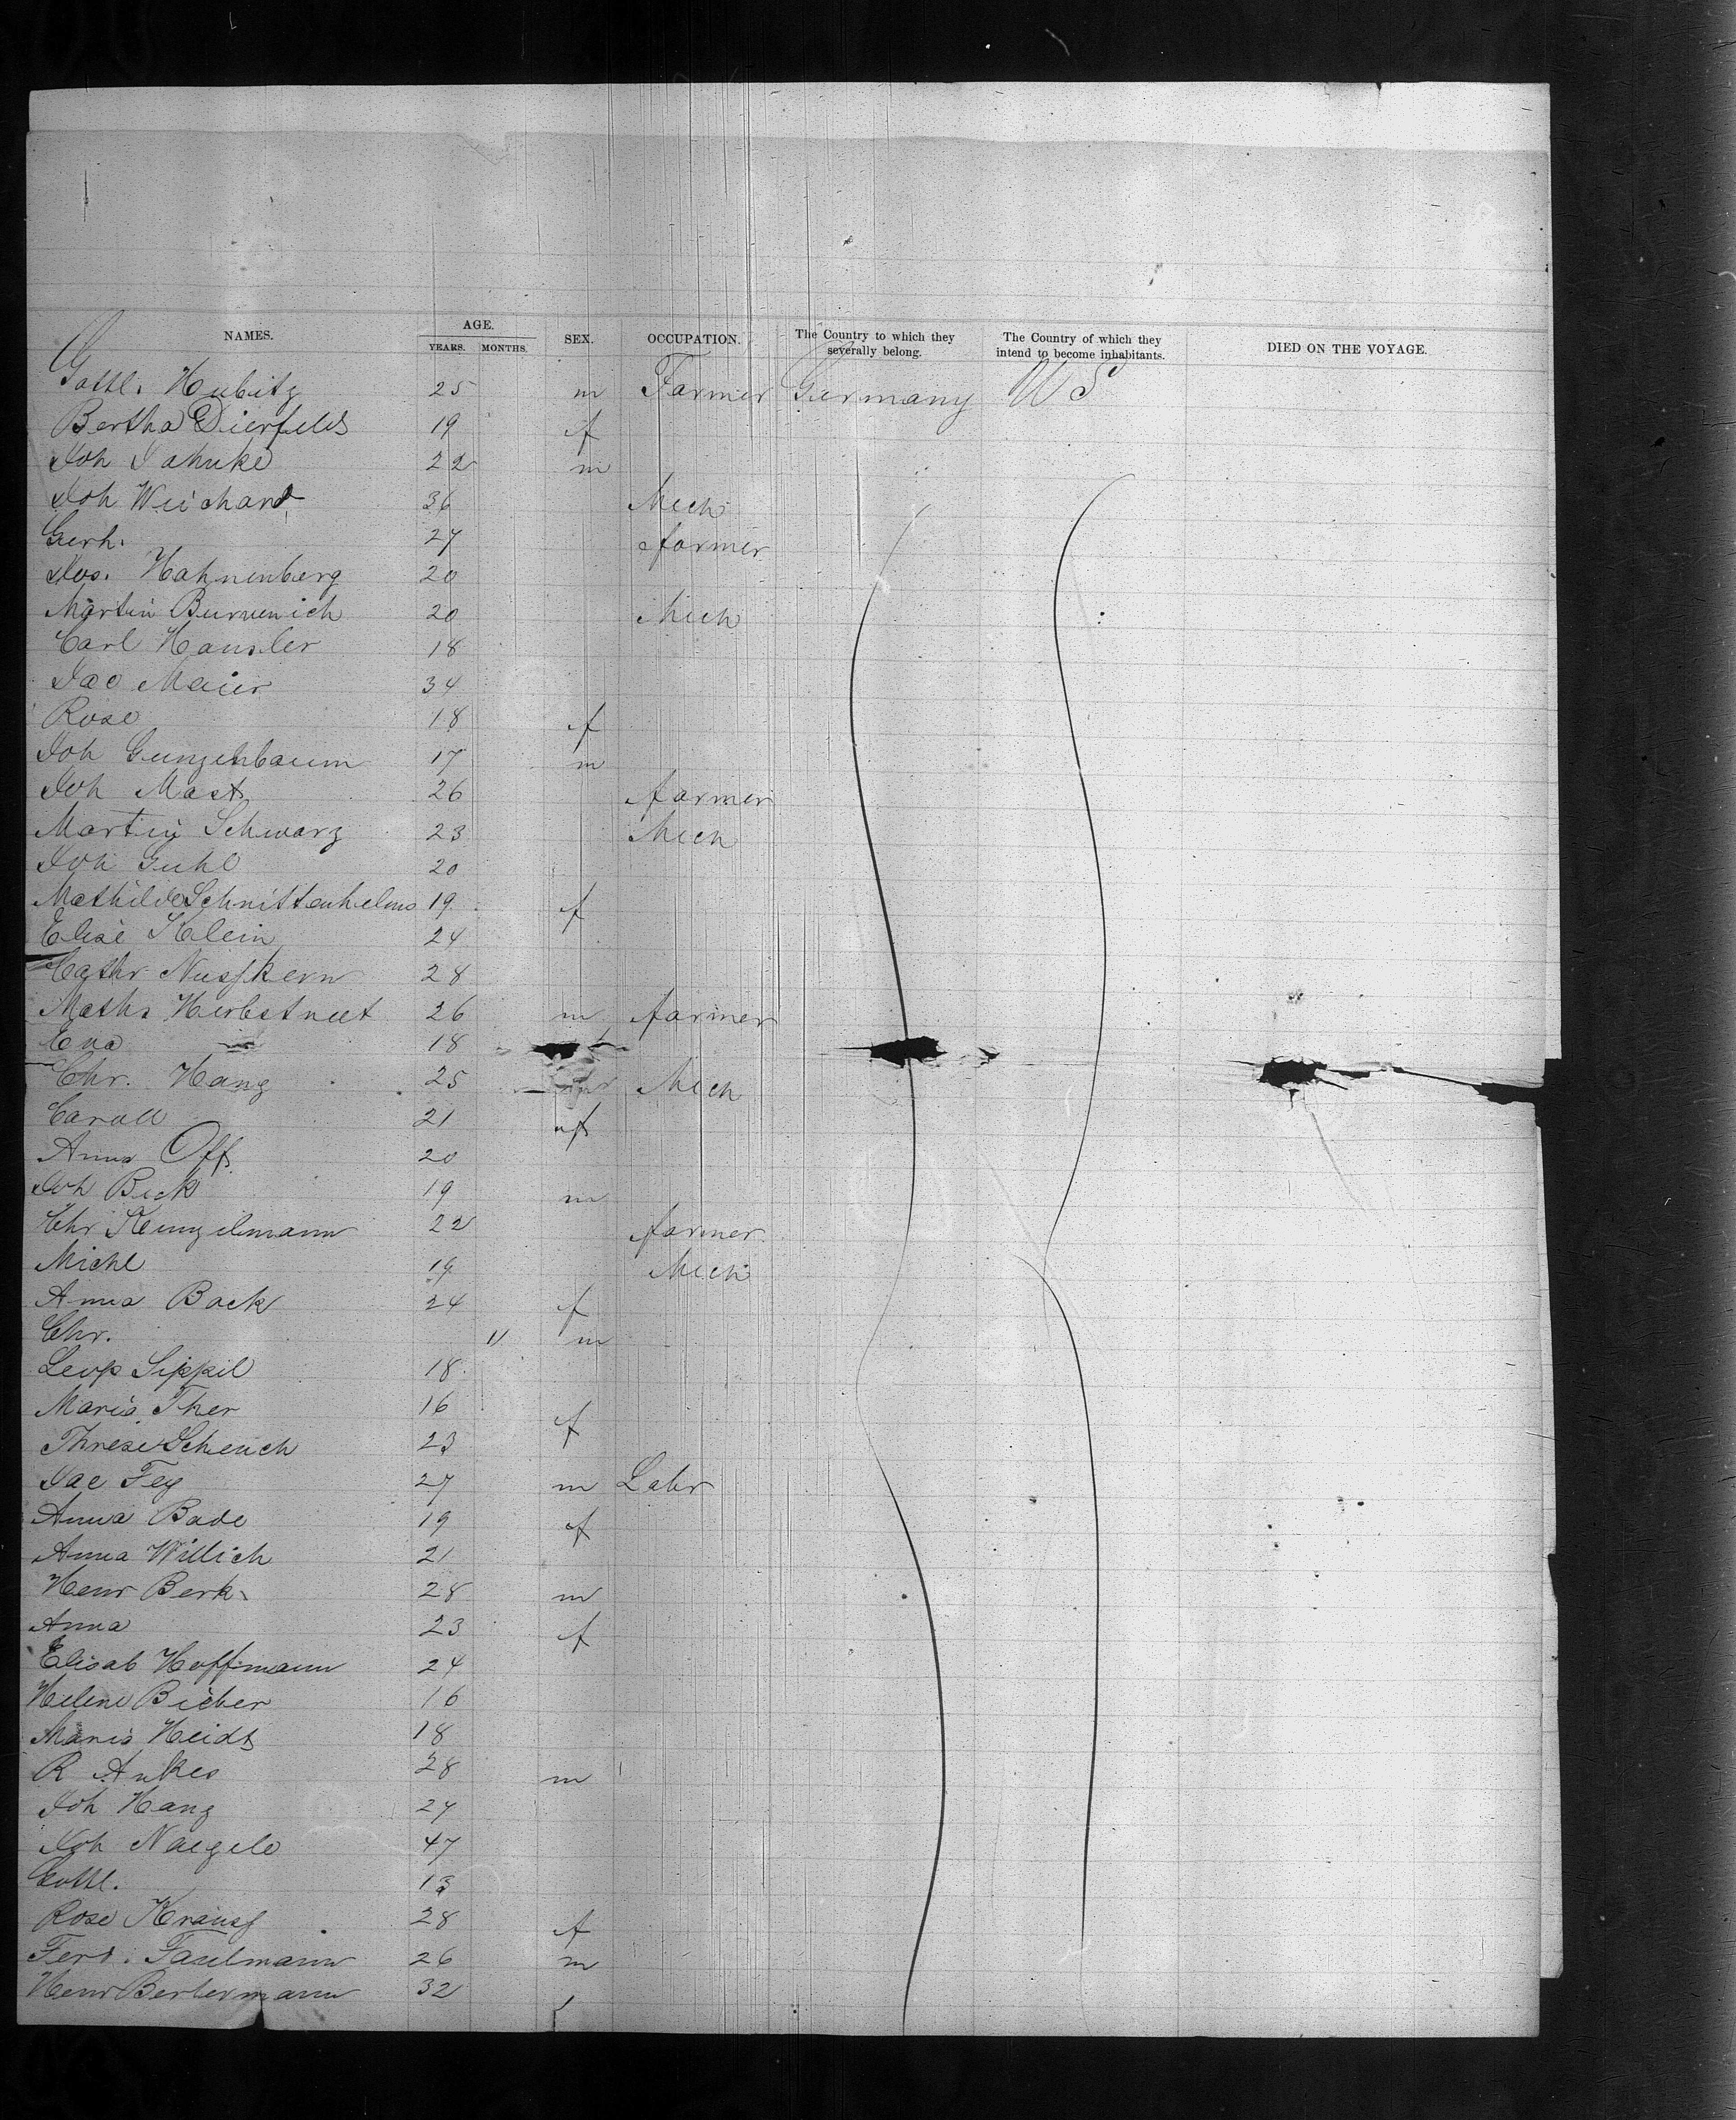 NAMES. AGE. YEARS. MONTHS. SEX. OCCUPATION. The Country to which they severally belong. The Country of which they intend to become inhabitants. DIED ON THE VOYAGE.
Gottl. Hubitz 25 m Farmer Germany US
Bertha Dierfeld 19 f
Joh Jahnke 22 m
Joh Weichard 36 Mech
Gerh. 27 farmer
Jos. Hahnenberg 20
Martin Burvenich 20 Mech
Carl Hansler 18
Jac Maier 34
Rose 18 f
Joh Gunzenbaum 17 m
Joh Mast 26 farmer
Martin Schwarz 23 Mech
Joh Guhl 20
Mathilde Schnittenhelm 19 f
Elise Klein 24
Cathr Nusskern 28
Maths Herbstreet 26 m farmer
Eva 18
Chr. Hang 25 Mech
Caroll 21 f
Anna Off 20
Joh Beck 19 m
Chr Kunzelmann 22 farmer
Michl 19 Mech
Anna Bock 24 f
Chr. 11 m
Leop Sippel 18
Maria Ther 16 f
Threse Scheuch 23
Jac Fey 27 m Labr
Anna Bade 19 f
Anna Willich 21
Henr Berk 28 m
Anna 23 f
Elisab Hoffmann 24
Helene Bieber 16
Maria Heidt 18
R Ankes 28 m
Joh Hang 27
Joh Naegele 47
Gottl. 13
Rose Krauss 28 f
Ferd. Faselmann 26 m
Henr Berlermann 32